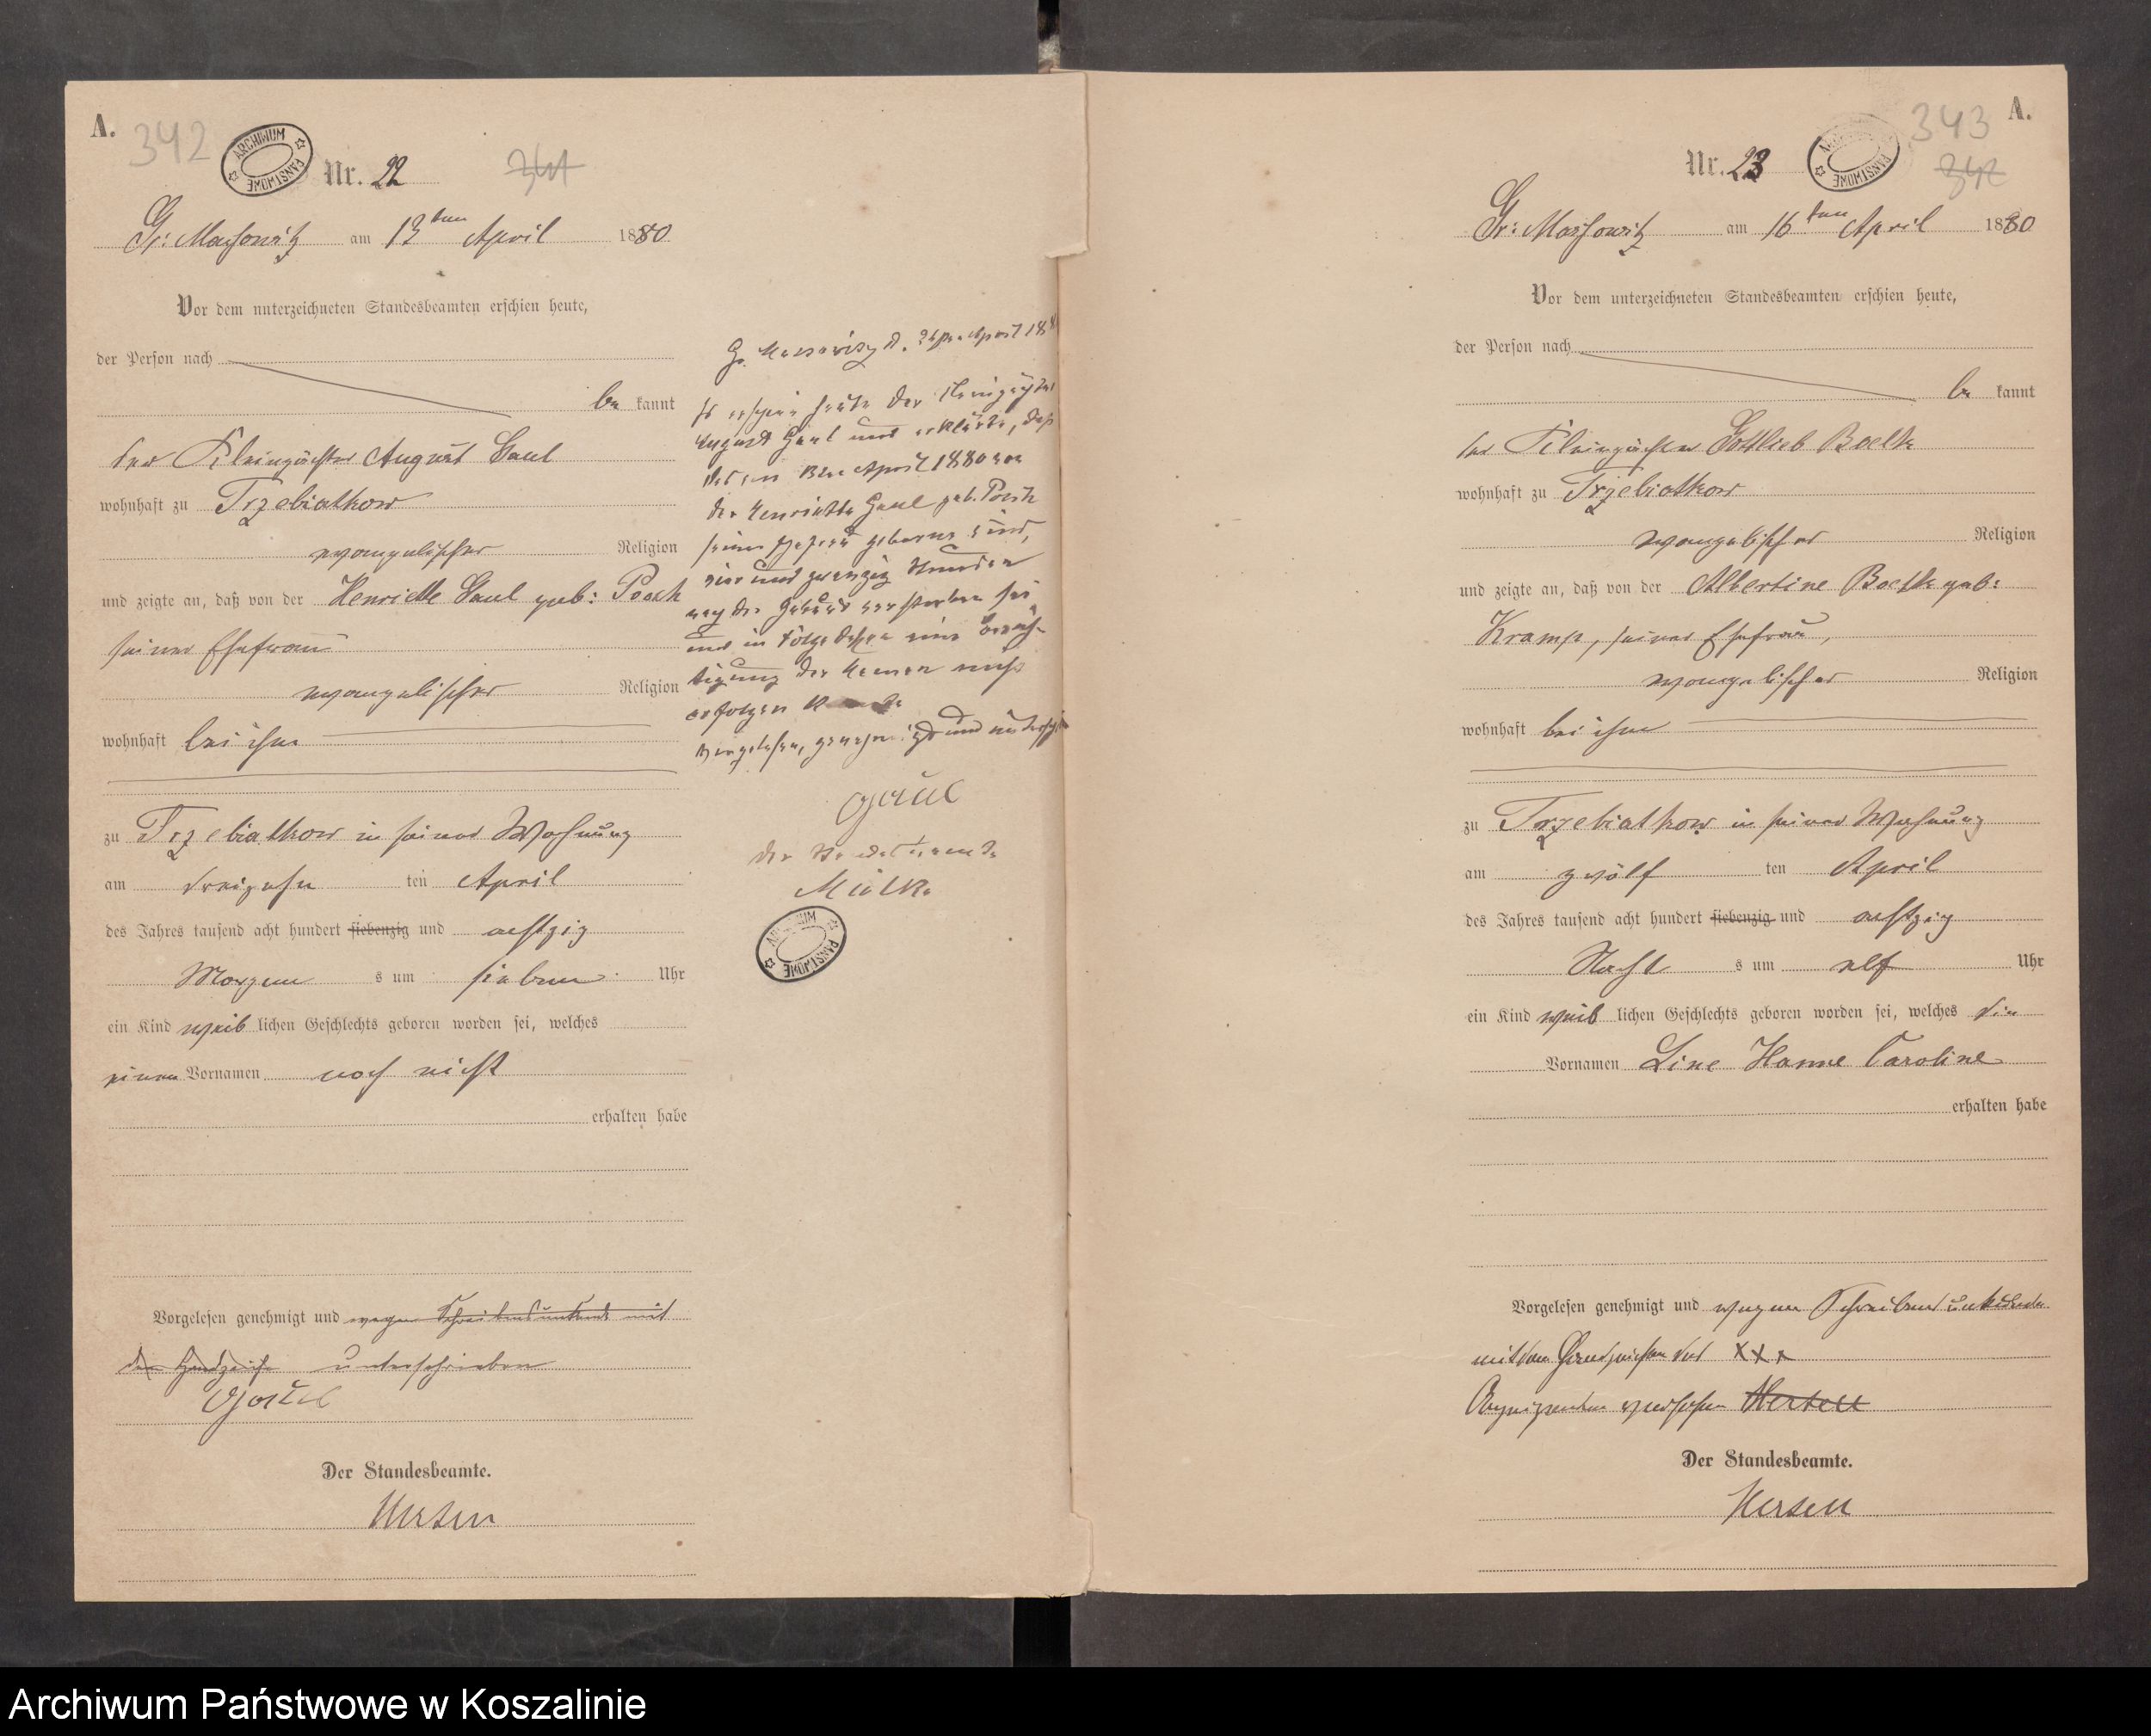 A.
342
ARCHIWUM PAŃSTWOWE
Nr. 22
341
Gr: Massowitz am 13ten April 1880
Vor dem unterzeichneten Standesbeamten erschien heute,
der Person nach
be kannt
der Kleinpächter August Gaul
wohnhaft zu Trzebiatkow
evangelischer Religion
und zeigte an, daß von der Henriette Gaul geb: Poeck
seiner Ehefrau
evangelischer Religion
wohnhaft bei ihm
zu Trzebiatkow in seiner Wohnung
am dreizehn ten April
des Jahres tausend acht hundert siebenzig und achtzig
Morgen s um sieben Uhr
ein Kind weib lichen Geschlechts geboren worden sei, welches
einen Vornamen noch nicht
erhalten habe
Vorgelesen genehmigt und wegen Schreibensunkunde mit
dem Handzeichen unterschrieben
Gaul
Der Standesbeamte.
Hersen
Gr. Massowitz d. April 188
Es erschien heute der
August Gaul und erklärte, daß
das am 13ten April 1880 von
der Henriette Gaul geb.
seiner Ehefrau geborene Kind,
vier und zwanzig Stunden
nach der Geburt verstorben sei
und in Folge dessen eine
der Namen nicht
erfolgen
Vorgelesen, genehmigt und
Gaul
Der Standesbeamte
ARCHIWUM PAŃSTWOWE
A.
343
ARCHIWUM PAŃSTWOWE
Nr. 23
342
Gr: Massowitz am 16ten April 1880
Vor dem unterzeichneten Standesbeamten erschien heute,
der Person nach
be kannt
der Kleinpächter Gottlieb Boelk
wohnhaft zu Trzebiatkow
evangelischer Religion
und zeigte an, daß von der Albertine Boelk geb:
Kramp, seiner Ehefrau,
evangelischer Religion
wohnhaft bei ihm
zu Trzebiatkow in seiner Wohnung
am zwölf ten April
des Jahres tausend acht hundert siebenzig und achtzig
Nacht s um elf Uhr
ein Kind weib lichen Geschlechts geboren worden sei, welches die
Vornamen Line Hanne Caroline
erhalten habe
Vorgelesen genehmigt und wegen Schreibensunkunde
mit dem Handzeichen des XXX
versehen Hersen
Der Standesbeamte.
Hersen
Archiwum Państwowe w Koszalinie